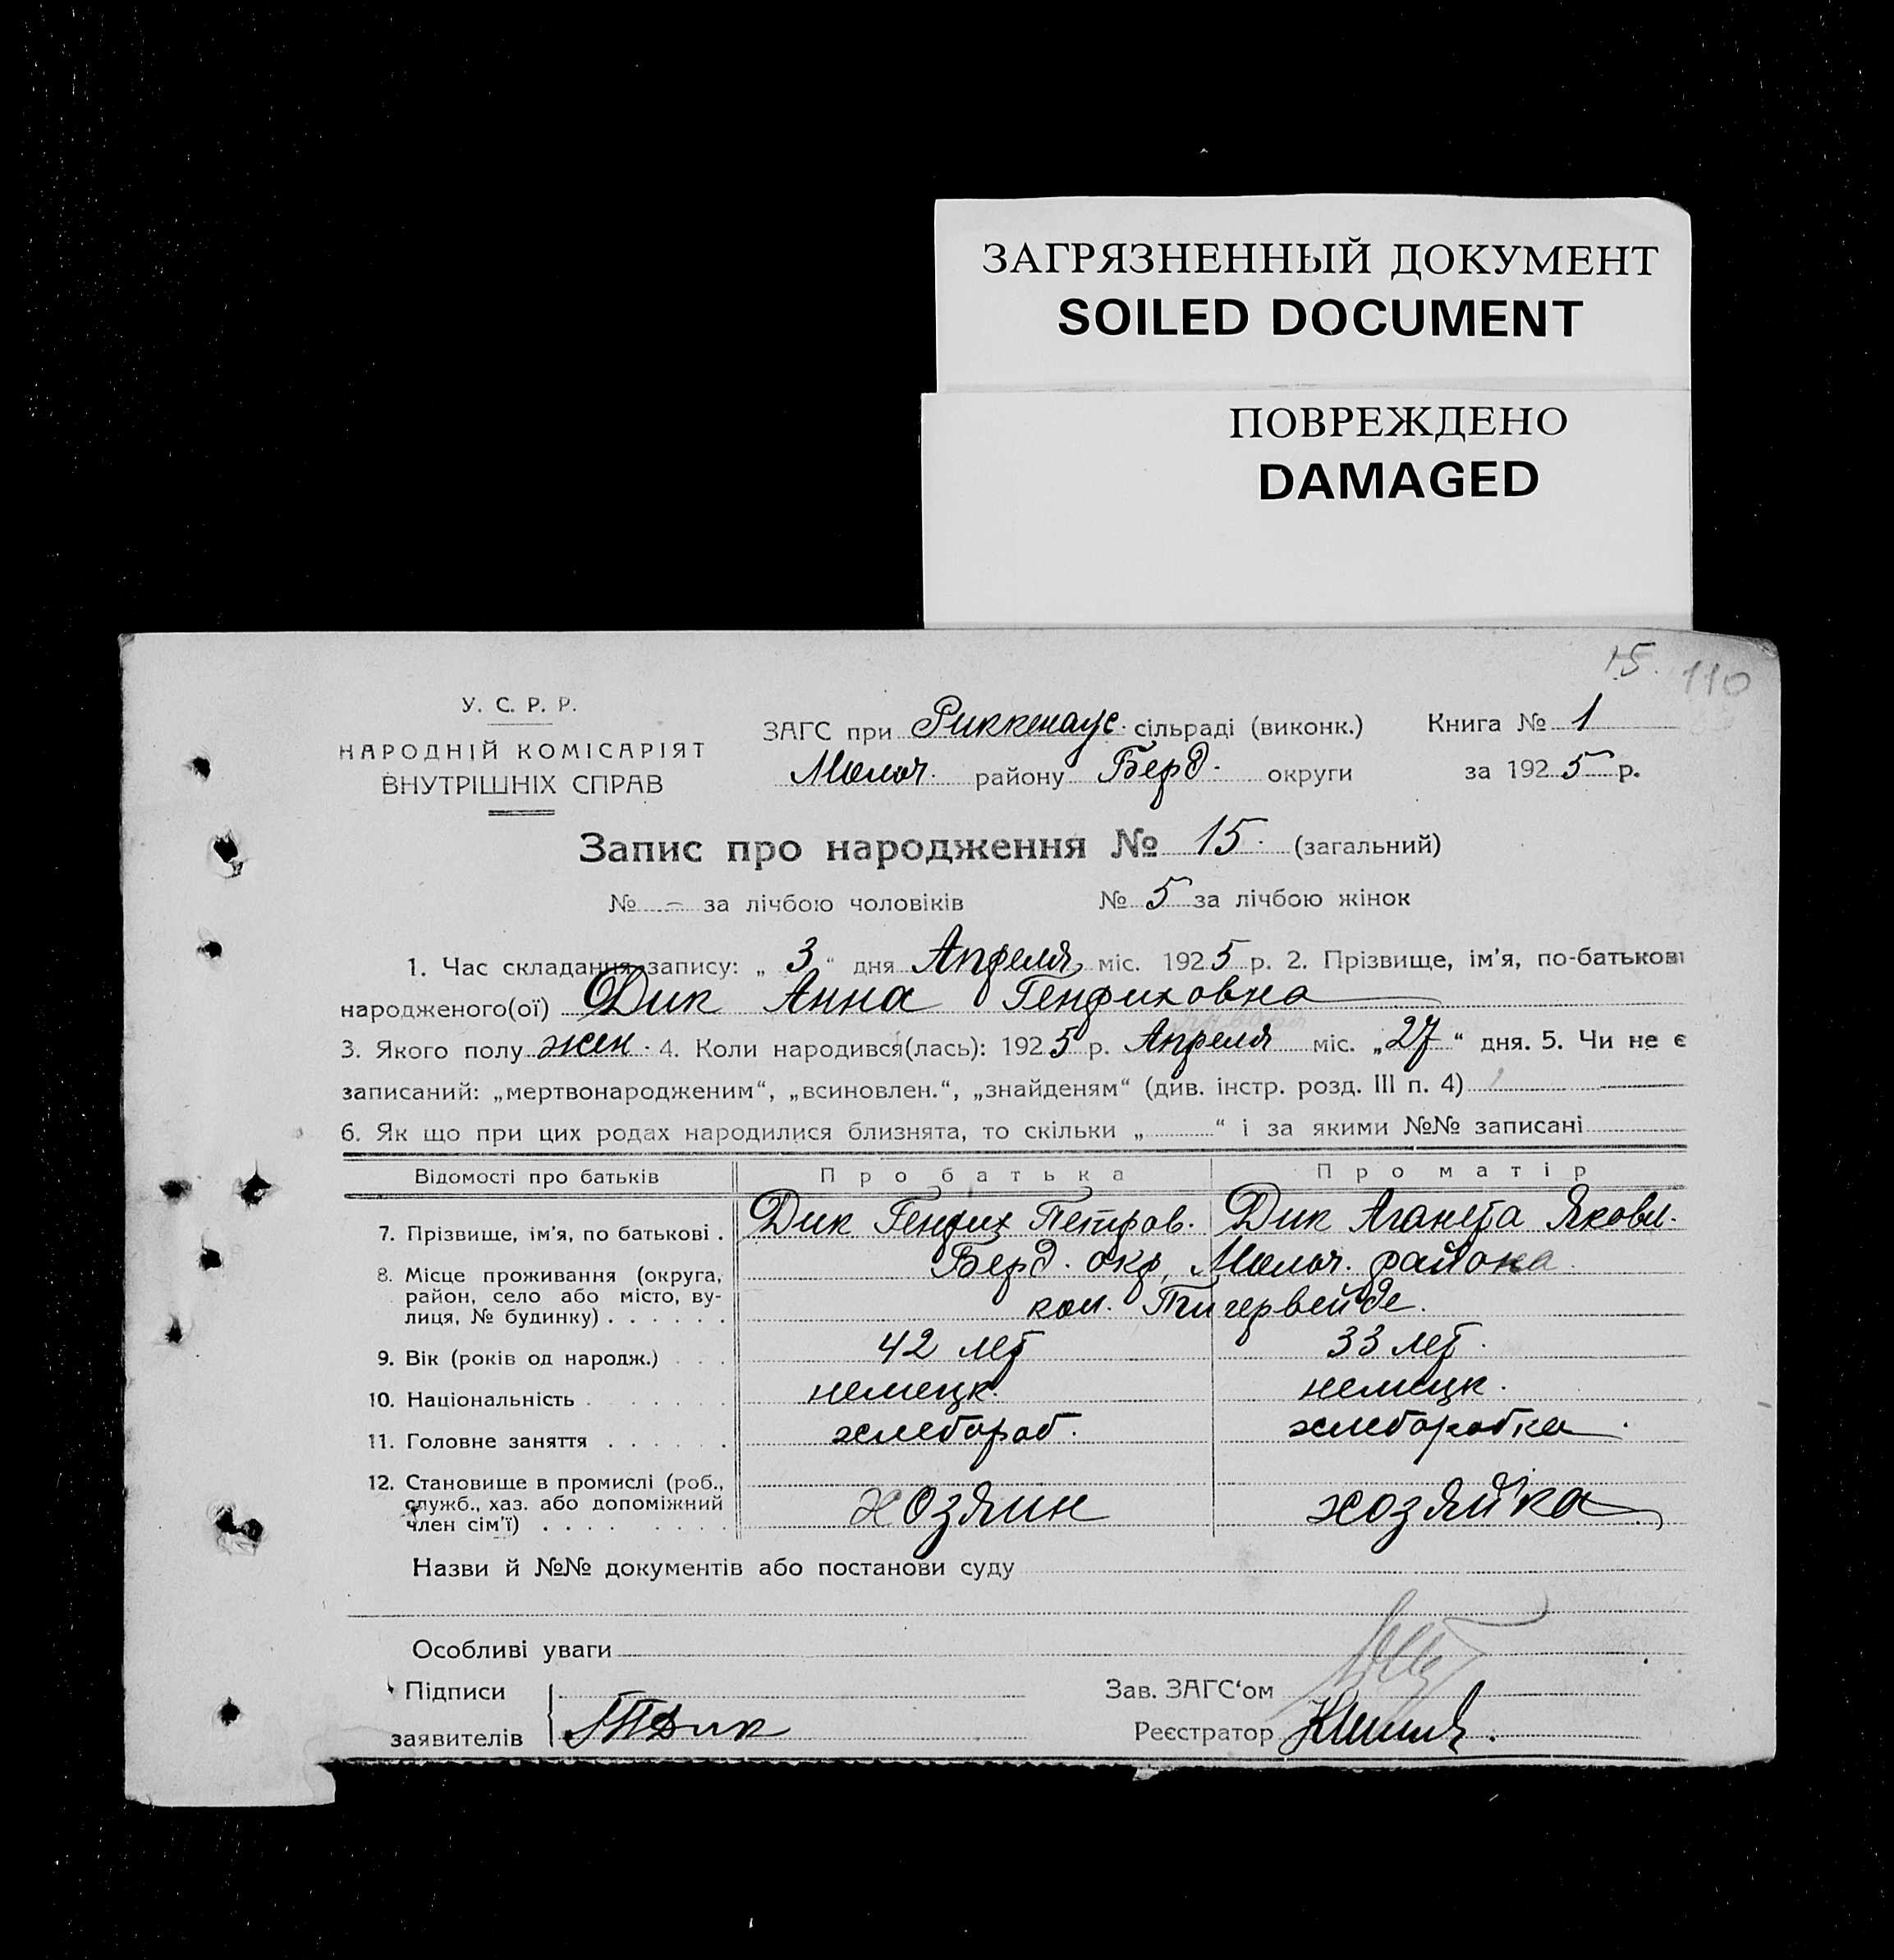 ЗАГРЯЗНЕННЫЙ ДОКУМЕНТ
SOILED DOCUMENT
ПОВРЕЖДЕНО
DAMAGED
15. 110
У. С. Р. Р.
НАРОДНІЙ КОМІСАРІЯТ
ВНУТРІШНІХ СПРАВ
ЗАГС при Риккенаус. сільраді (виконк.) Книга № 1
Молоч. району Берд. округи за 1925 р.
Запис про народження № 15. (загальний)
№ – за лічбою чоловіків № 5 за лічбою жінок
1. Час складання запису: „ 3 “ дня Апреля міс. 1925 р. 2. Прізвище, ім’я, по-батькові
народженого(ої) Дик Анна Генриховна
3. Якого полу жен. 4. Коли народився(лась): 1925 р. Апреля міс. „27“ дня. 5. Чи не є
записаний: „мертвонародженим“, „всиновлен.“, „знайденям“ (див. інстр. розд. III п. 4)
6. Як що при цих родах народилися близнята, то скільки „ “ і за якими №№ записані
Відомості про батьків Про батька Про матір
7. Прізвище, ім’я, по батькові . Дик Генрих Петров. Дик Аганета Яковл.
8. Місце проживання (округа, район, село або місто, вулиця, № будинку) . . . . . . Берд. окр, Молоч. района
кол. Тигервейде.
9. Вік (років од народж.) . . . 42 лет 33 лет.
10. Національність . . . . . . . немецк. немецк.
11. Головне заняття . . . . . . хлебороб. хлеборобка.
12. Становище в промислі (роб., служб., хаз. або допоміжний член сім’ї) . . . . . . . . хозяин хозяйка
Назви й №№ документів або постанови суду
Особливі уваги
Підписи Зав. ЗАГС‘ом
заявителів Дик Реєстратор